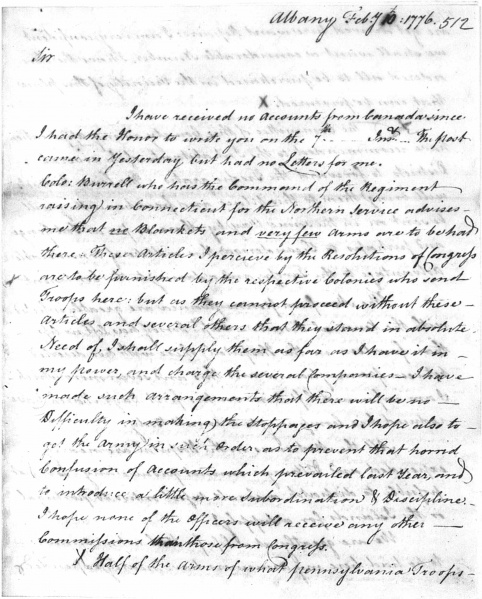 Albany Feby 10: 1776. 512
Sir
X
I have received no accounts from Canada since
I had the Honor to write you on the 7th Inst. The post
came in Yesterday but had no Letters for me.
Colo: Burrell who has the Command of the Regiment
raising in Connecticut for the Northern Service advises
me that no Blankets and very few Arms are to be had
there. These Articles I perceive by the Resolutions of Congress
are to be furnished by the respective Colonies who send
Troops here: but as they cannot proceed without these
Articles and several others that they stand in absolute
Need of, I shall supply them as far as I have it in
my power, and charge the several Companies – I have
made such arrangements that there will be no
Difficulty in making the Stoppages and I hope also to
get the Army in such Order, as to prevent that horrid
Confusion of Accounts which prevailed last Year, and
to introduce a little more Subordination & Discipline.
I hope none of the Officers will receive any other
Commissions than those from Congress.
X Half of the Arms of what pennsylvania Troops